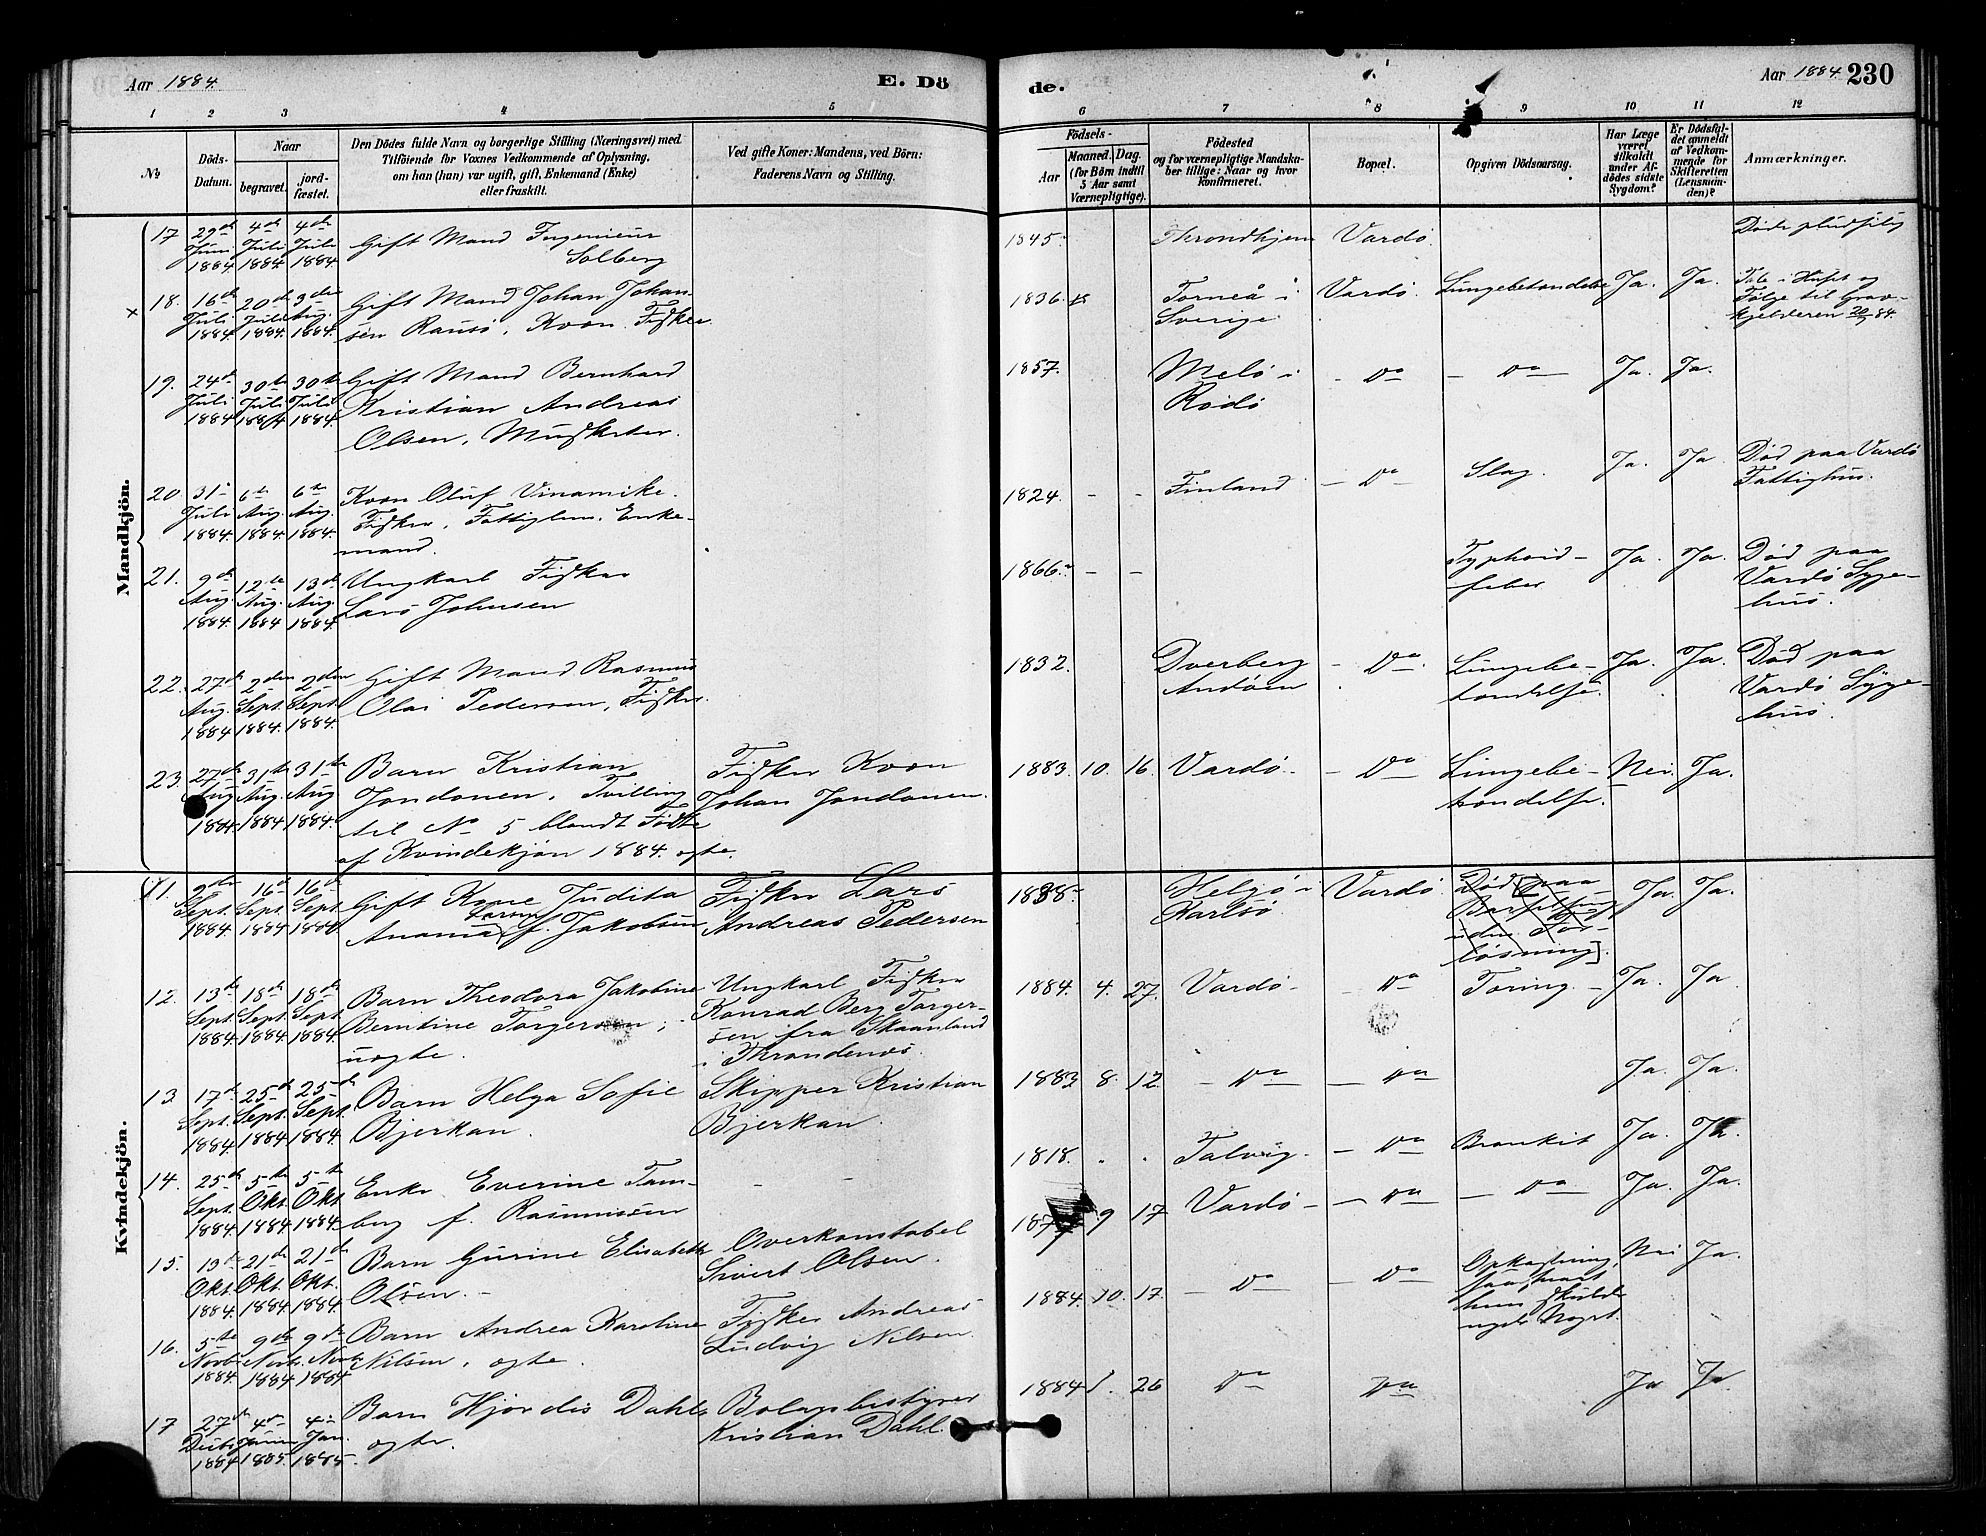 Aar 1884.
E. Dö
de.
Aar 1884. 230
1 2 3 4 5 6 7 8 9 10 11 12
No
Döds-
Datum.
Naar
begravet.
jord-
fæstet.
Den Dödes fulde Navn og borgerlige Stilling (Næringsvei) med
Tilföiende for Voxnes Vedkommende af Oplysning,
om han (hun) var ugift, gift, Enkemand (Enke)
eller fraskilt.
Ved gifte Koner: Mandens, ved Börn:
Faderens Navn og Stilling.
Födsels-
Aar
Maaned. Dag.
(for Börn indtil
5 Aar samt
Værnepligtige).
Födested
og for værnepligtige Mandska-
ber tillige: Naar og hvor
konfirmeret.
Bopæl.
Opgiven Dödsaarsag.
Har Læge
været
tilkaldt
under Af-
dödes sidste
Sygdom?
Er Dödsfal-
det anmeldt
af Vedkom-
mende for
Skifteretten
(Lensman-
den)?
Anmærkninger.
Mandkjön.
17 29de Juni 1884 4de Juli 1884. 4de Juli 1884.
Gift Mand Ingenieur
Solberg
1845. Throndhjem Vardö. Döde pludselig
× 18. 16de Juli 1884. 20de Juli 1884. 3die Aug. 1884.
Gift Mand Johan Johan-
sen Kvæn. Fisker.
1836. Torneå i
Sverige
Vardö. Lungebetændelse Ja. Ja. Tale i Huset og
Følge til Grav-
kjelderen 20/7 84.
19. 24de Juli 1884 30te Juli 1884 30te Juli 1884.
Gift Mand Bernhard
Kristian Andreas
Olsen,
1857. Melö i
Rödö
- Do - Do - Ja. Ja.
20. 31te Juli 1884. 6te Aug. 1884. 6te Aug. 1884.
Kvæn Oluf
Fisker, Fattiglem. Enke-
mand.
1824. - - Finland - Do Slag. Ja. Ja Död paa Vardö
Fattighus.
21. 9de Aug. 1884 12te Aug. 1884 13de Aug. 1884.
Ungkarl Fisker
Lars Johnsen
1866. - - Typhoid-
feber
Ja. Ja. Död paa
Vardö Syge-
hus.
22. 27de Aug. 1884 2den Sept. 1884. 2den Sept. 1884.
Gift Mand Rasmus
Olai Pedersen, Fisker.
1832. Dverberg
Andöen
- Do. Lungebe-
tændelse.
Ja. Ja. Död paa
Vardö Syge-
hus.
23. 27de Aug. 1884. 31te Aug. 1884 31te Aug 1884.
Barn Kristian
Jondonen, Tvilling
til No 5 blandt Födte
af Kvindekjön 1884. ægte.
Fisker Kvæn
Johan Jondonen.
1883. 10. 16. Vardö. - Do Lungebe-
tændelse.
Nei. Ja.
Kvindekjön.
11. 9de Sept. 1884. 16de Sept. 1884 16de Sept. 1884.
Gift Kone Judita
Anania Larsen f. Jakobsen
Fisker Lars
Andreas Pedersen
1838. Helgö i
Karlsö.
Vardö. Död paa
Barselseng
uden For-
lösning].
Ja. Ja.
12. 13de Sept. 1884. 18de Sept. 1884. 18de Sept. 1884.
Barn Theodora Jakobine
Berntine Torgersen,
uægte.
Ungkarl Fisker
Konrad Berg Torger-
sen fra Skaanland
i Throndenæs.
1884. 4. 27. Vardö - - Do Tæring. - Ja. Ja
13 17de Sept. 1884. 25de Sept. 1884 25de Sept. 1884.
Barn Helga Sofie
Bjerkan.
Skipper Kristian
Bjerkan.
1883 8. 12. - Do - Do Ja. Ja.
14. 25de Sept. 1884 5te Okt. 1884 5te Okt. 1884.
Enke Everine Tam-
berg f. Rasmussen
- -
1818. . . Talvig. - Do Bronkit Ja. Ja.
15. 19de Okt. 1884. 21de Okt. 1884. 21de Okt. 1884
Barn Gurine Elisabeth
Olsen. -
Overkonstabel
Sivert Olsen.
9 17 Vardö - - Do - Do - Ja. Ja.
16. 5te Novbr. 1884. 9de Novbr. 1884 9de Novbr. 1884
Barn Andrea Karoline
Nilsen, ægte.
Fisker Andreas
Ludvig Nilsen.
1884. 10. 17. - Do - - Do Opkastning,
saasnart
hun skulde
nyde Noget.
Nei Ja.
17 27de Decbr. 1884 4de Januar 1885. 4de Jan. 1885.
Barn Hjördis Dahl,
ægte.
Bolagsbestyrer
Kristian Dahl.
1884 1. 26 Do Do Ja Ja.